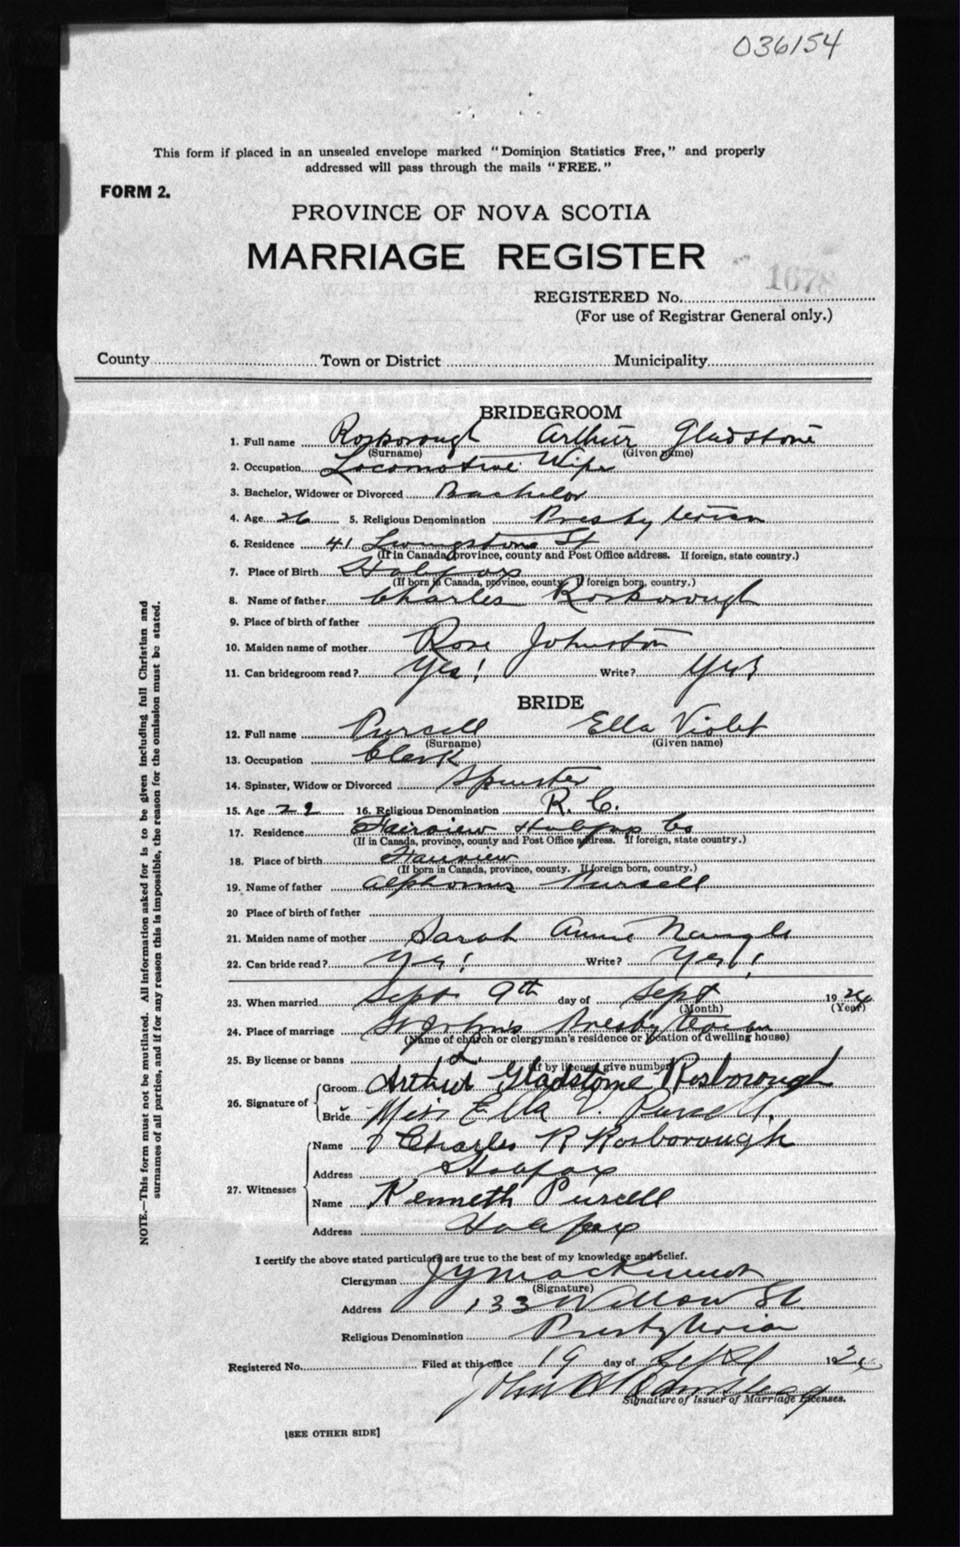 036154
This form if placed in an unsealed envelope marked "Dominion Statistics Free," and properly
addressed will pass through the mails "FREE."
FORM 2.
PROVINCE OF NOVA SCOTIA
MARRIAGE REGISTER
REGISTERED No. 1678
(For use of Registrar General only.)
County Town or District Municipality
BRIDEGROOM
1. Full name Rosborough Arthur Gladstone
(Surname) (Given name)
2. Occupation Locomotive Wiper
3. Bachelor, Widower or Divorced Bachelor
4. Age 26 5. Religious Denomination Presbyterian
6. Residence 41 Livingstone St
(If in Canada, province, county and Post Office address. If foreign, state country.)
7. Place of Birth Halifax
(If born in Canada, province, county. If foreign born, country.)
8. Name of father Charles Rosborough
9. Place of birth of father
10. Maiden name of mother Rose Johnston
11. Can bridegroom read? Yes! Write? Yes
BRIDE
12. Full name Purcell Ella Violet
(Surname) (Given name)
13. Occupation Clerk
14. Spinster, Widow or Divorced Spinster
15. Age 22 16. Religious Denomination R. C.
17. Residence Fairview Halifax Co
(If in Canada, province, county and Post Office address. If foreign, state country.)
18. Place of birth Fairview
(If born in Canada, province, county. If foreign born, country.)
19. Name of father Alphonsus Pursell
20 Place of birth of father
21. Maiden name of mother Sarah Annie Naugle
22. Can bride read? Yes! Write? Yes!
23. When married Sept 9th day of Sept 1924
(Month) (Year)
24. Place of marriage St John's Presbyterian
(Name of church or clergyman's residence or location of dwelling house)
25. By license or banns L.
(If by license give number)
26. Signature of Groom Arthur Gladstone Rosborough
Bride Miss Ella V. Purcell.
27. Witnesses Name Charles R Rosborough
Address Halifax
Name Kenneth Purcell
Address Halifax
I certify the above stated particulars are true to the best of my knowledge and belief.
Clergyman
(Signature)
Address 133 Willow St.
Religious Denomination Presbyterian
Registered No. Filed at this office 19 day of Sept 192
John
Signature of Issuer of Marriage Licenses.
[SEE OTHER SIDE]
NOTE.—This form must not be mutilated. All information asked for is to be given including full Christian and
surnames of all parties, and if for any reason this is impossible, the reason for the omission must be stated.